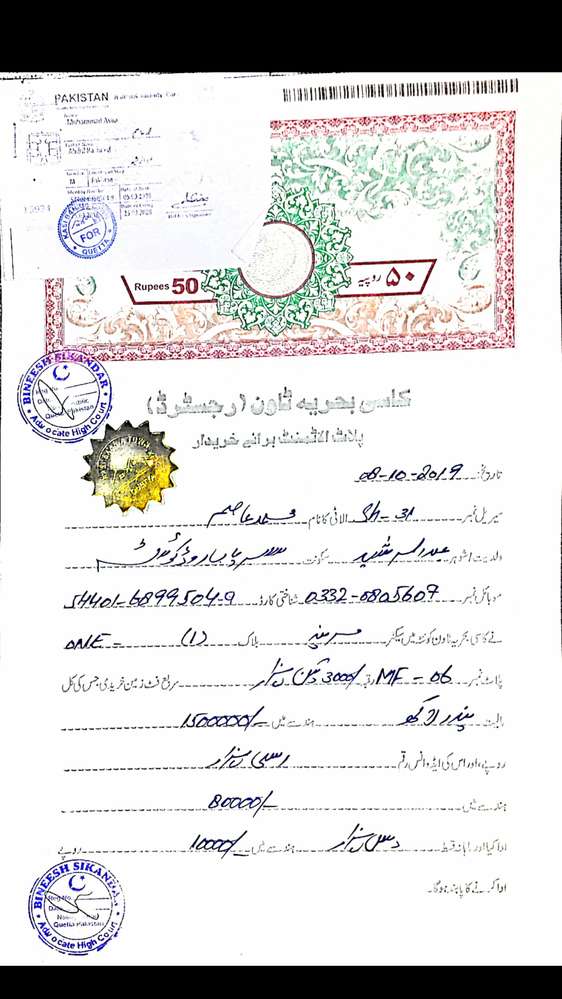 PAKISTAN
Rupees 50
۵۰ روپیہ
KASI BAHRIA
FOR
QUETTA
BINEESH SIKANDAR
Quetta Pakistan
Advocate High Court
کاسی بحریہ ٹاون (رجسٹرڈ)
پلاٹ الاٹمنٹ برائے خریدار
تاریخ: 08-10-2019
سیریل نمبر Sh-31 الاٹی کا نام محمد عاصم
ولدیت / شوہر عبدالرشید سکونت
موبائل نمبر 0332-0805607 شناختی کارڈ 54401-6899504-9
نے کاسی بحریہ ٹاون کوئٹہ میں سیکٹر بلاک (1) ONE-
پلاٹ نمبر MF-06 رقبہ 3000/ تین ہزار مربع فٹ زمین خریدی جس کی کل
مالیت پندرہ لاکھ ہندسے میں 1500000/-
روپے، اور اس کی ایڈوانس رقم اسی ہزار
ہندسے میں 80000/-
ادا کیا اور ماہانہ قسط دس ہزار ہندسے میں 10000/- روپے
ادا کرنے کا پابند ہوگا۔
BINEESH SIKANDAR
Quetta Pakistan
Advocate High Court